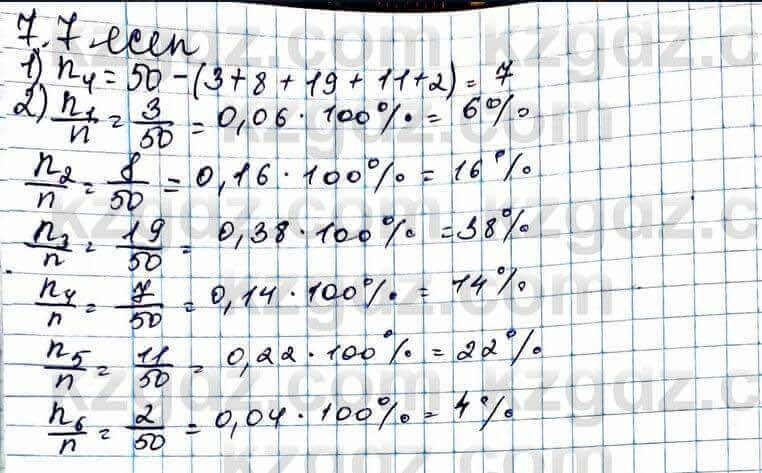 7.7 есеп
1) n₄ = 50 - (3 + 8 + 19 + 11 + 2) = 7
2) n₁/n = 3/50 = 0,06 · 100% = 6%
n₂/n = 8/50 = 0,16 · 100% = 16%
n₃/n = 19/50 = 0,38 · 100% = 38%
n₄/n = 7/50 = 0,14 · 100% = 14%
n₅/n = 11/50 = 0,22 · 100% = 22%
n₆/n = 2/50 = 0,04 · 100% = 4%
kzgdz.com